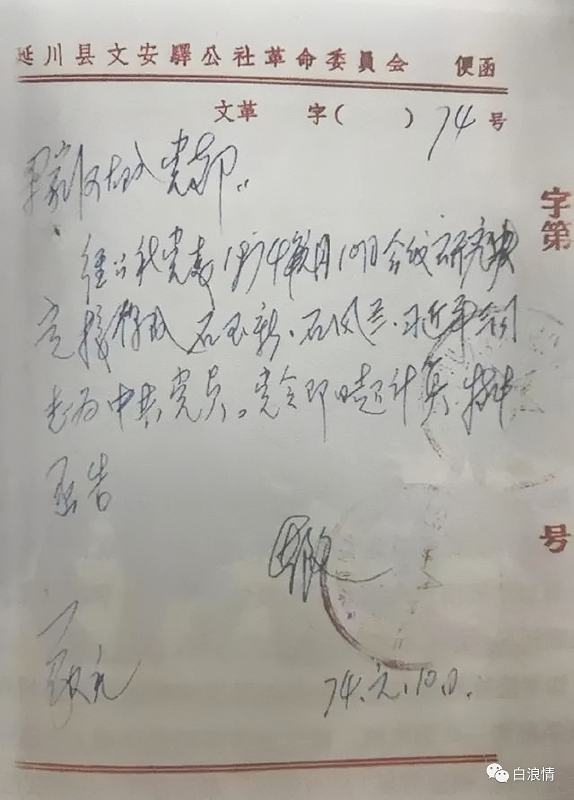 延川县文安驿公社革命委員会 便函
文革 字( ) 74 号
梁家河大队党支部：
经公社党委1974年元月10日会议研究决
定接收 石玉新、石凤兰、习近平 同
志为中共党员。党令即日起计算，特此
函告
74.元.10日.
字第
号
白浪情